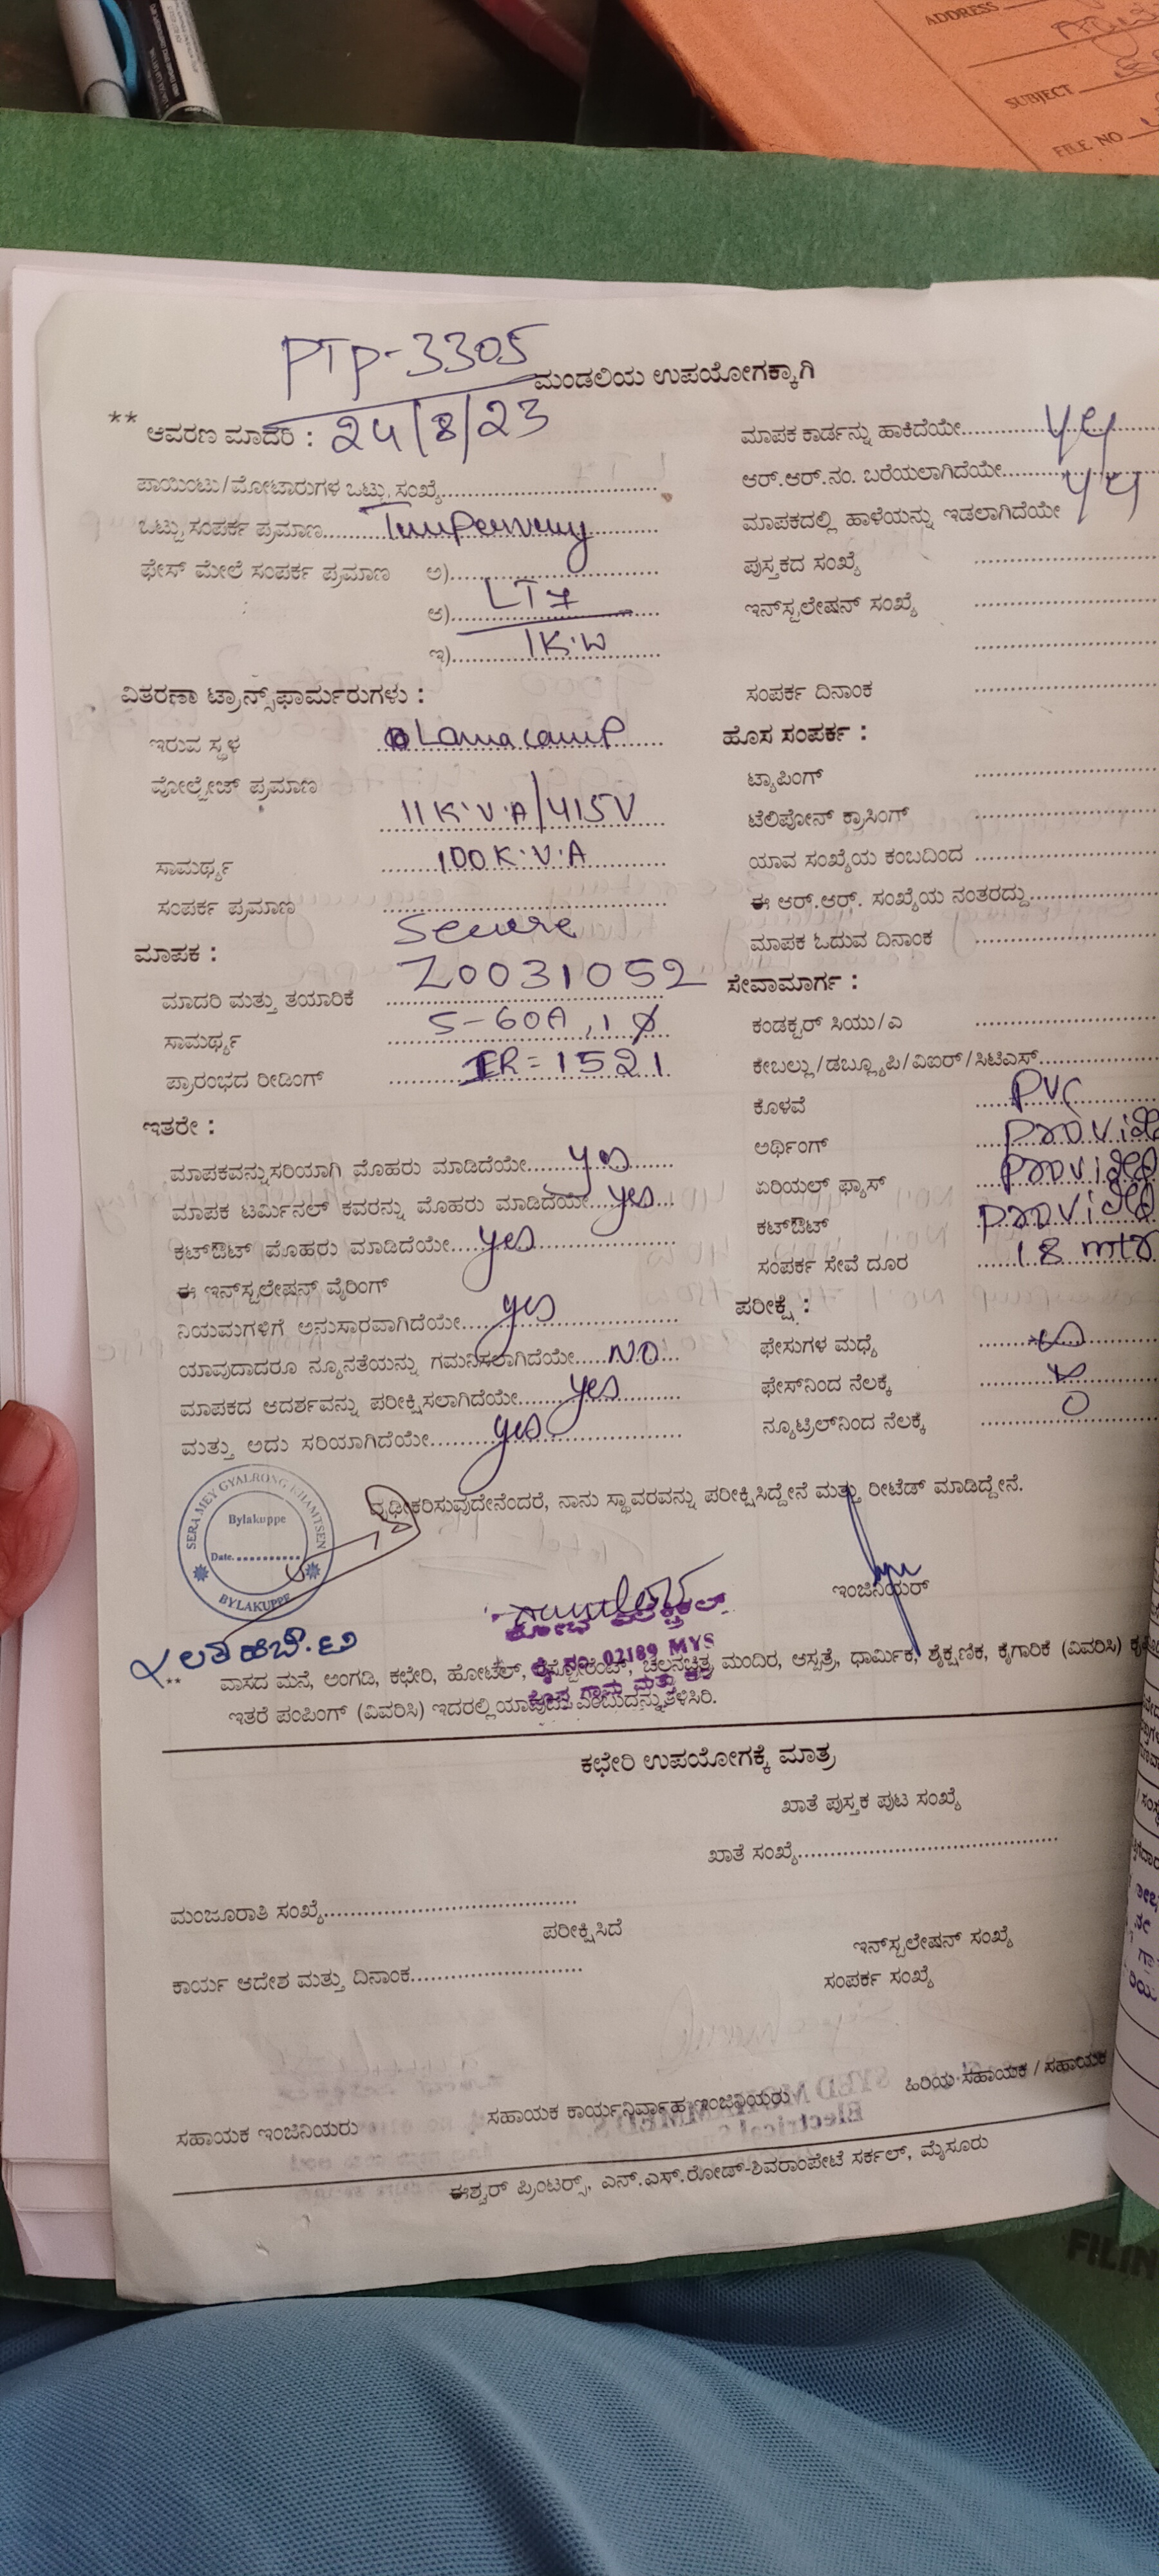 ADDRESS
SUBJECT
FILE NO
PTP-3305
ಮಂಡಲಿಯ ಉಪಯೋಗಕ್ಕಾಗಿ
** ಆವರಣ ಮಾದರಿ : 24/8/23
ಪಾಯಿಂಟು/ಮೋಟಾರುಗಳ ಒಟ್ಟು ಸಂಖ್ಯೆ
ಒಟ್ಟು ಸಂಪರ್ಕ ಪ್ರಮಾಣ
ಫೇಸ್ ಮೇಲೆ ಸಂಪರ್ಕ ಪ್ರಮಾಣ ಅ)
ಆ) LT7
ಇ) 1K.W
ವಿತರಣಾ ಟ್ರಾನ್ಸ್‌ಫಾರ್ಮರುಗಳು :
ಇರುವ ಸ್ಥಳ Lama camp
ವೋಲ್ಟೇಜ್ ಪ್ರಮಾಣ
11K.V.A/415V
ಸಾಮರ್ಥ್ಯ 100K.V.A
ಸಂಪರ್ಕ ಪ್ರಮಾಣ
Secure
ಮಾಪಕ :
Z0031052
ಮಾದರಿ ಮತ್ತು ತಯಾರಿಕೆ
ಸಾಮರ್ಥ್ಯ 5-60A, 1Ø
ಪ್ರಾರಂಭದ ರೀಡಿಂಗ್ IR=1521
ಇತರೇ :
ಮಾಪಕವನ್ನು ಸರಿಯಾಗಿ ಮೊಹರು ಮಾಡಿದೆಯೇ yes
ಮಾಪಕ ಟರ್ಮಿನಲ್ ಕವರನ್ನು ಮೊಹರು ಮಾಡಿದೆಯೇ yes
ಕಟ್‌ಔಟ್ ಮೊಹರು ಮಾಡಿದೆಯೇ yes
ಈ ಇನ್‌ಸ್ಟಲೇಷನ್ ವೈರಿಂಗ್
ನಿಯಮಗಳಿಗೆ ಅನುಸಾರವಾಗಿದೆಯೇ yes
ಯಾವುದಾದರೂ ನ್ಯೂನತೆಯನ್ನು ಗಮನಿಸಲಾಗಿದೆಯೇ NO
ಮಾಪಕದ ಆದರ್ಶವನ್ನು ಪರೀಕ್ಷಿಸಲಾಗಿದೆಯೇ yes
ಮತ್ತು ಅದು ಸರಿಯಾಗಿದೆಯೇ yes
ಮಾಪಕ ಕಾರ್ಡನ್ನು ಹಾಕಿದೆಯೇ
ಆರ್.ಆರ್.ನಂ. ಬರೆಯಲಾಗಿದೆಯೇ
ಮಾಪಕದಲ್ಲಿ ಹಾಳೆಯನ್ನು ಇಡಲಾಗಿದೆಯೇ
ಪುಸ್ತಕದ ಸಂಖ್ಯೆ
ಇನ್‌ಸ್ಟಲೇಷನ್ ಸಂಖ್ಯೆ
ಸಂಪರ್ಕ ದಿನಾಂಕ
ಹೊಸ ಸಂಪರ್ಕ :
ಟ್ಯಾಪಿಂಗ್
ಟೆಲಿಪೋನ್ ಕ್ರಾಸಿಂಗ್
ಯಾವ ಸಂಖ್ಯೆಯ ಕಂಬದಿಂದ
ಈ ಆರ್.ಆರ್. ಸಂಖ್ಯೆಯ ನಂತರದ್ದು
ಮಾಪಕ ಓದುವ ದಿನಾಂಕ
ಸೇವಾಮಾರ್ಗ :
ಕಂಡಕ್ಟರ್ ಸಿಯು/ಎ
ಕೇಬಲ್ಲು/ಡಬ್ಲ್ಯೂಪಿ/ವಿಐರ್/ಸಿಟಿಎಸ್
ಕೊಳವೆ PVC
ಅರ್ಥಿಂಗ್ provided
ಏರಿಯಲ್ ಫ್ಯೂಸ್ provided
ಕಟ್‌ಔಟ್ provided
ಸಂಪರ್ಕ ಸೇವೆ ದೂರ 18 mtr
ಪರೀಕ್ಷೆ :
ಫೇಸುಗಳ ಮಧ್ಯೆ
ಫೇಸ್‌ನಿಂದ ನೆಲಕ್ಕೆ
ನ್ಯೂಟ್ರಲ್‌ನಿಂದ ನೆಲಕ್ಕೆ 0
ದೃಢೀಕರಿಸುವುದೇನೆಂದರೆ, ನಾನು ಸ್ಥಾವರವನ್ನು ಪರೀಕ್ಷಿಸಿದ್ದೇನೆ ಮತ್ತು ರೀಟೆಡ್ ಮಾಡಿದ್ದೇನೆ.
SERA MEY GYALRONG KHAMTSEN
Bylakuppe
Date
BYLAKUPPE
ಇಂಜಿನಿಯರ್
02189 MYS
** ವಾಸದ ಮನೆ, ಅಂಗಡಿ, ಕಛೇರಿ, ಹೋಟೆಲ್, ರೆಸ್ಟೋರೆಂಟ್, ಚಲನಚಿತ್ರ ಮಂದಿರ, ಆಸ್ಪತ್ರೆ, ಧಾರ್ಮಿಕ, ಶೈಕ್ಷಣಿಕ, ಕೈಗಾರಿಕೆ (ವಿವರಿಸಿ)
ಇತರೆ ಪಂಪಿಂಗ್ (ವಿವರಿಸಿ) ಇದರಲ್ಲಿ ಯಾವುದು ಎಂಬುದನ್ನು ತಿಳಿಸಿರಿ.
ಕಛೇರಿ ಉಪಯೋಗಕ್ಕೆ ಮಾತ್ರ
ಖಾತೆ ಪುಸ್ತಕ ಪುಟ ಸಂಖ್ಯೆ
ಖಾತೆ ಸಂಖ್ಯೆ
ಮಂಜೂರಾತಿ ಸಂಖ್ಯೆ
ಪರೀಕ್ಷಿಸಿದೆ
ಇನ್‌ಸ್ಟಲೇಷನ್ ಸಂಖ್ಯೆ
ಕಾರ್ಯ ಆದೇಶ ಮತ್ತು ದಿನಾಂಕ
ಸಂಪರ್ಕ ಸಂಖ್ಯೆ
ಸಹಾಯಕ ಇಂಜಿನಿಯರು
ಸಹಾಯಕ ಕಾರ್ಯನಿರ್ವಾಹ ಇಂಜಿನಿಯರು
ಹಿರಿಯ ಸಹಾಯಕ / ಸಹಾಯಕ
ಈಶ್ವರ್ ಪ್ರಿಂಟರ್ಸ್, ಎನ್.ಎಸ್.ರೋಡ್-ಶಿವರಾಂಪೇಟೆ ಸರ್ಕಲ್, ಮೈಸೂರು
FILIN